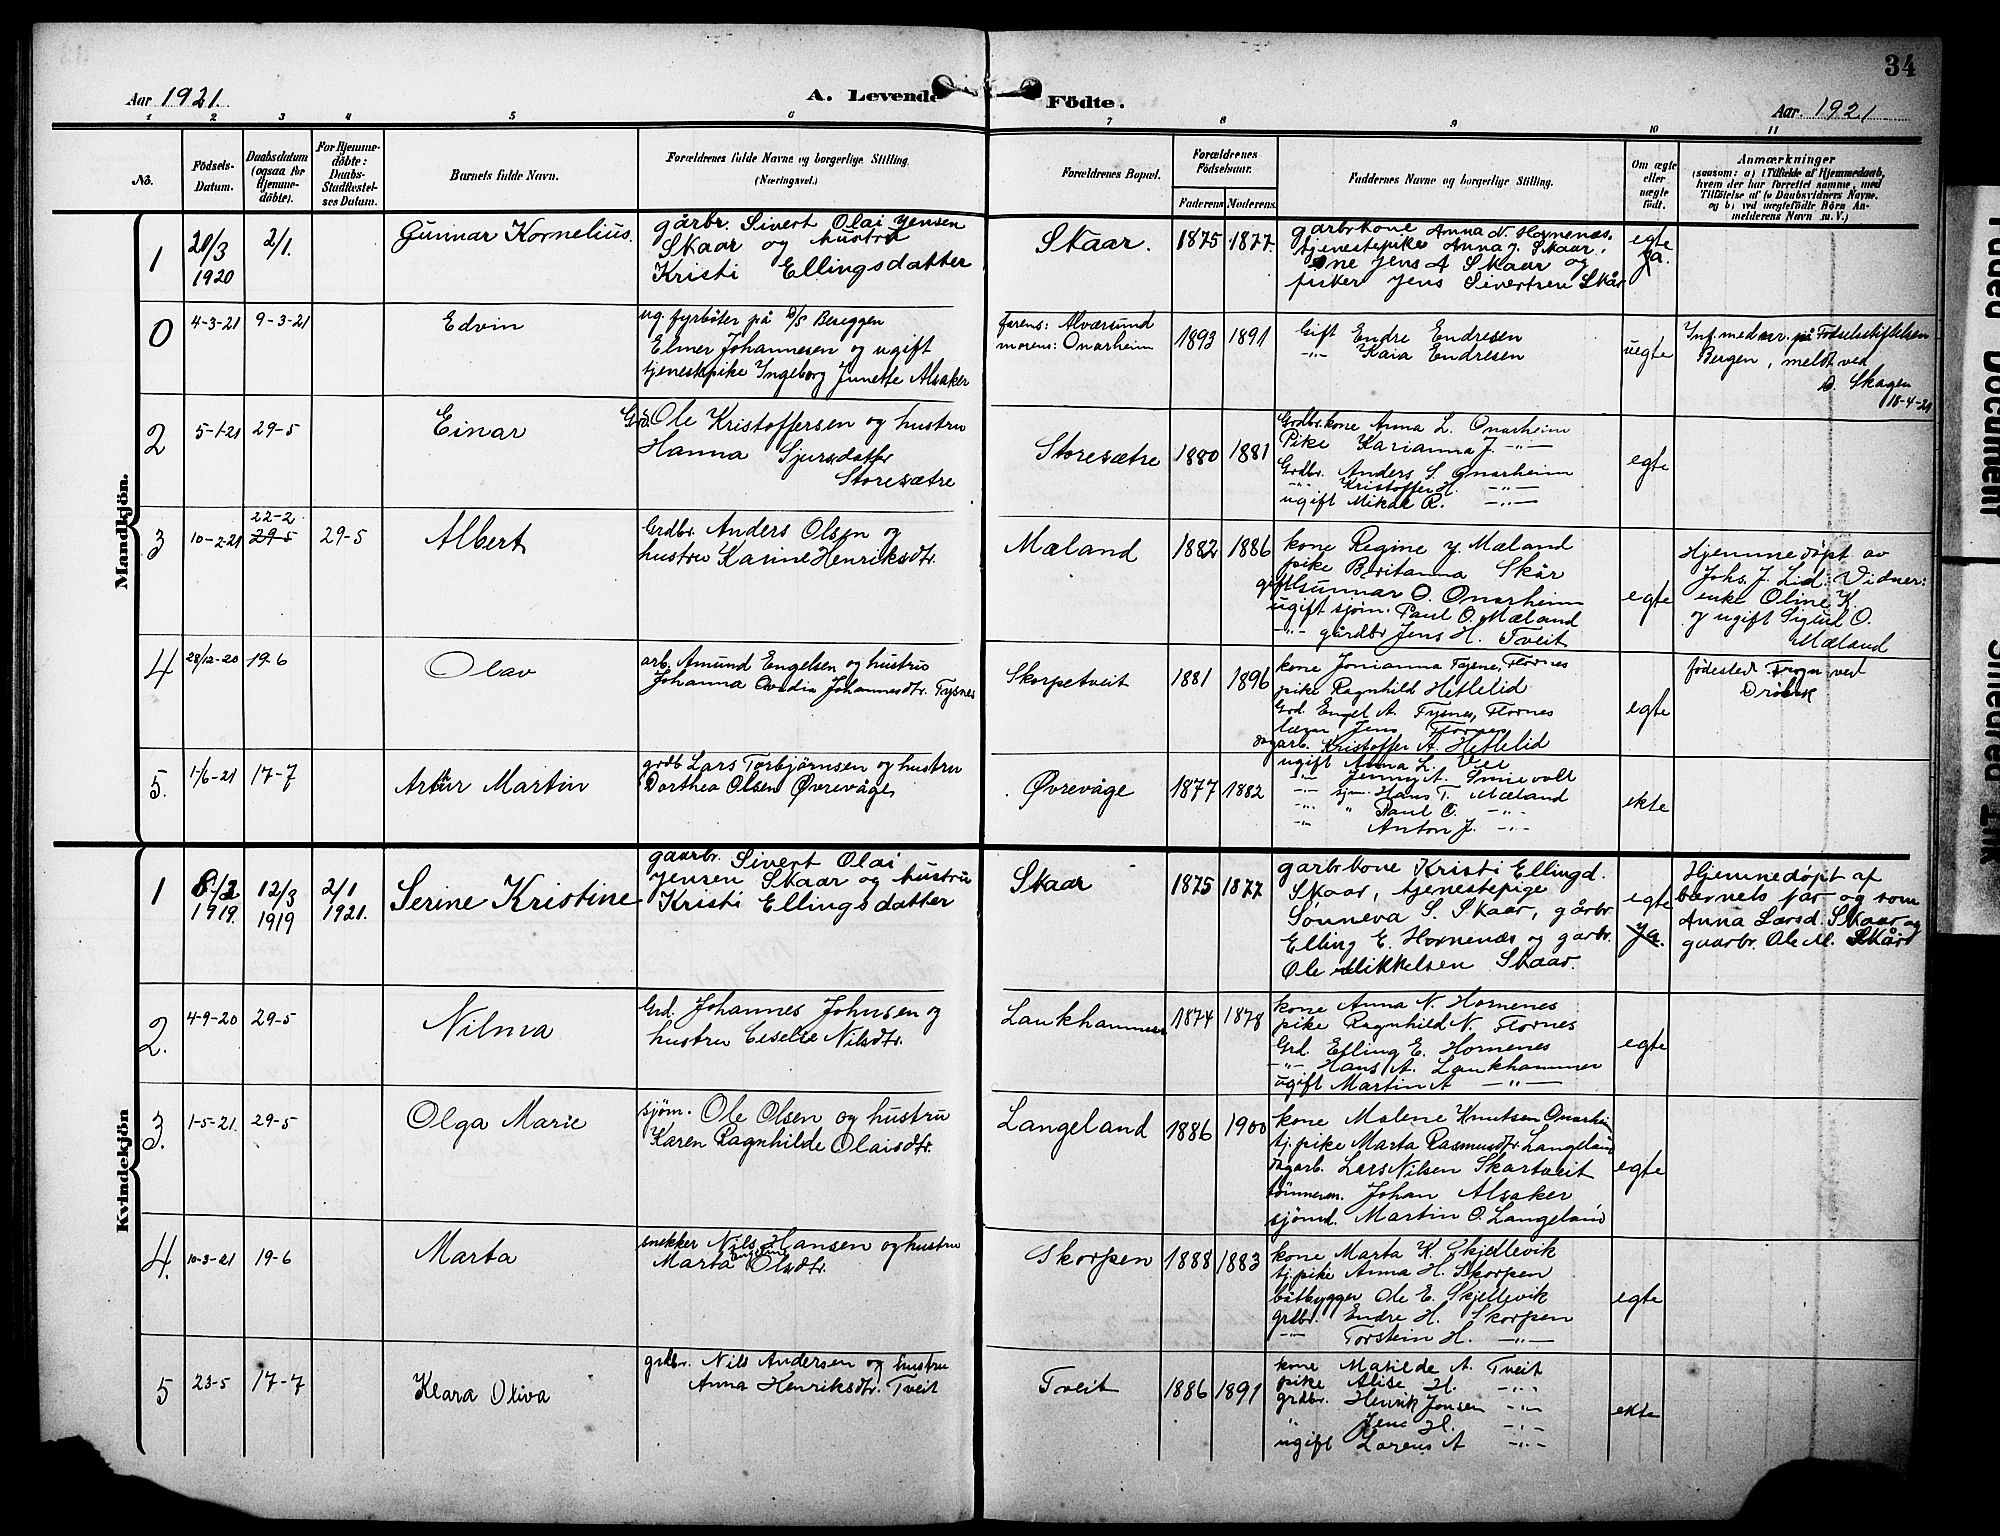 34
Aar 1921.
A. Levende Födte.
Aar 1921
1 2 3 4 5 6 7 8 9 10 11
No.
Födsels-Datum.
Daabsdatum (ogsaa for Hjemme-döbte).
For Hjemme-döbte: Daabs-Stadfæstel-ses Datum.
Barnets fulde Navn.
Forældrenes fulde Navne og borgerlige Stilling. (Næringsvei.)
Forældrenes Bopæl.
Forældrenes Födselsaar.
Faderens Moderens.
Faddernes Navne og borgerlige Stilling.
Om ægte eller uægte født.
Anmærkninger
(saasom: a) i Tilfælde af Hjemmedaab, hvem der har forrettet samme, med Tilföielse af to Daabsvidners Navne, og b) ved uægtefödte Börn An-melderens Navn m. V.)
Mandkjön.
1 20/3 1920 2/1. Gunnar Kornelius.
gårbr. Sivert Olai Jensen
Skaar og hustru
Kristi Ellingsdatter
Skaar. 1875 1877.
garbrkone Anna N. Hornenæs,
tjenestepike Anna J. Skaar,
Jens A Skaar og
fisker Jens Sivertsen Skår
egte ja.
0 4-3-21 9-3-21 Edvin
ug. fyrbøter på D/S Beseggen
Elmer Johannesen og ugift
tjenestepike Ingeborg Junette Alsaker
farens: Alværsund
morens: Onarheim
1893 1891
Gift Endre Endresen
-"- Kaia Endresen
uegte
Inf. med nr. på Fødselsstiftelsen
Bergen, meldt ved
D. Skagen
18-4-21
2 5-1-21 29-5 Einar
Grd. Ole Kristoffersen og hustru
Hanna Sjursdatter
Storesætre
Storesætre 1880 1881
Grdbr.kone Anna L. Onarheim
Pike Karianna J. -"-
Grdbr. Anders S. Onarheim
-"- Kristoffer H. -"-
ugift Mikal R. -"-
egte
3 10-2-21 22-2 29-5 29-5 Albert
Grdbr. Anders Olsen og
hustru Karine Henriksdtr.
Mæland 1882 1886
kone Regine J. Mæland
pike Beritanna Skår
gift Gunnar O. Onarheim
ugift sjøm. Paul O. Mæland
-"- gårdbr Jens H. Tveit
egte
Hjemmedøpt av
Johs. J. Lid. Vidner:
enke Oline K.
og ugift Sigurd O.
Mæland
4 28/12-20 19-6 Olav
arb. Amund Engelsen og hustru
Johanna Ovedia Johannesdtr. Tysnes
Skorpetveit 1881 1896
kone Jonianna Tysnes, Flornes
pike Ragnhild Heflelid
Grd. Engel A. Tysnes, Flornes
Jens Flornes
dagarb. Kristoffer A. Heflelid
egte
fødested Frogn ved
Drøbak
5. 1/6-21 17-7 Artur Martin
grdb Lars Torbjørnsen og hustru
Dorthea Olsen Øvrevåge
Øvrevåge 1877 1882
ugift Anna L. Vee
-"- Jenny A. Smievoll
-"- sjm. Hans T. Mæland
-"- " Paul O. -"-
-"- Anton J. -"-
ekte
Kvindekjön
1 1919. 12/3 1919 2/1 1921. Serine Kristine
gaarbr. Sivert Olai
Jensen Skaar og hustru
Kristi Ellingsdatter
Skaar 1875 1877
garbrkone Kristi Ellingd.
Skaar, tjenestepige
Sonneva S. Skaar, gårbr
Elling E. Hornenæs og garbr.
Ole Mikkelsen Skaar.
egte ja.
Hjemmedøpt af
barnets far og som
Anna Larsd. Skaar og
gaarbr. Ole M. Skår
2. 4-9-20 29-5 Nilma
Grd. Johannes Johnsen og
hustru Ceselie Nilsdtr.
Laukhammer 1874 1878
kone Anna N. Hornenes
pike Ragnhild N. Flornes
Grd. Elling E. Hornenes
-"- Hans A. Laukhammer
ugift Martin A -"-
egte
3. 1-5-21. 29-5 Olga Marie
sjøm. Ole Olsen og hustru
Karen Ragnhilde Olaisdtr.
Langeland 1886 1900
kone Malene Knutsen Onarheim
tj.pike Marta Rasmusdtr. Langeland
dagarb. Lars Nilsen Skartveit
tømmerm. Johan Alsaker
sjømd. Martin O. Langeland
egte
4. 10-3-21 19-6 Marta
snekker Nils Hansen og hustru
Marta Olsdtr.
Skorpen 1888 1883
kone Marta K. Skjellevik
tj.pike Anna H. Skorpen
båtbygger Ole E. Skjellevik
grdbr. Endre H. Skorpen
-"- Torstein H. -"-
egte
5 23-5 17-7 Klara Oliva
grdbr. Nils Andersen og hustru
Anna Henriksdtr. Tveit
Tveit 1886 1891
kone Matilde A. Tveit
pike Alise H. -"-
grdbr. Henrik Jonsen -"-
" Jens H. -"-
ugift Lorens A -"-
ekte